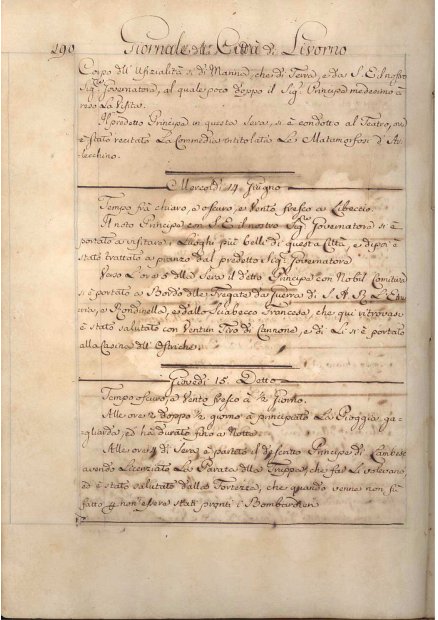 290 Giornale della Città di Livorno
Corpo dell' Ufizialità sì di Marina, che di Terra, e da S. E. il nostro
Sig. Governatore, al quale poco doppo il Sig. Principe medesimo à
reso La Visita.
Il predetto Principe in questa Sera, si è condotto al Teatro, ove
è stato recitato La Commedia intitolata Le Metamorfosi d'Ar-
lecchino.
Mercoldi 14 Giugno
Tempo frà chiaro, e oscuro, e Vento fresco a Libeccio.
Il noto Principe con S. E. il nostro Sig. Governatore si è
portato a visitare i Luoghi più belli di questa Città, e dipoi è
stato trattato a pranzo dal predetto Sig. Governatore
Verso L'ore 5 della Sera il detto Principe con Nobil Comitiva
si è portato a Bordo delle Fregate da Guerra di S. A. R. L'
e Rondinella, e dallo Sciabecco Francese, che qui ritrovasi
è stato salutato con Ventun Tiro di Cannone, e di Li si è portato
alla Casina dell' Ostriche.
Giovedi 15 Detto
Tempo oscuro, e Vento fresco à ½ Giorno.
Alle ore 2 doppo ½ giorno à principiato La Pioggia ga-
gliarda, ed hà durato fino a Notte.
Alle ore 4 di Sera è partito il descritto Principe di Lambesc
avendo Licenziato La Parata della Truppa, che far Li volevano
ed è stato salutato dalla Fortezza, che quando venne non fù
fatto p. non essere stati pronti i Bombardieri